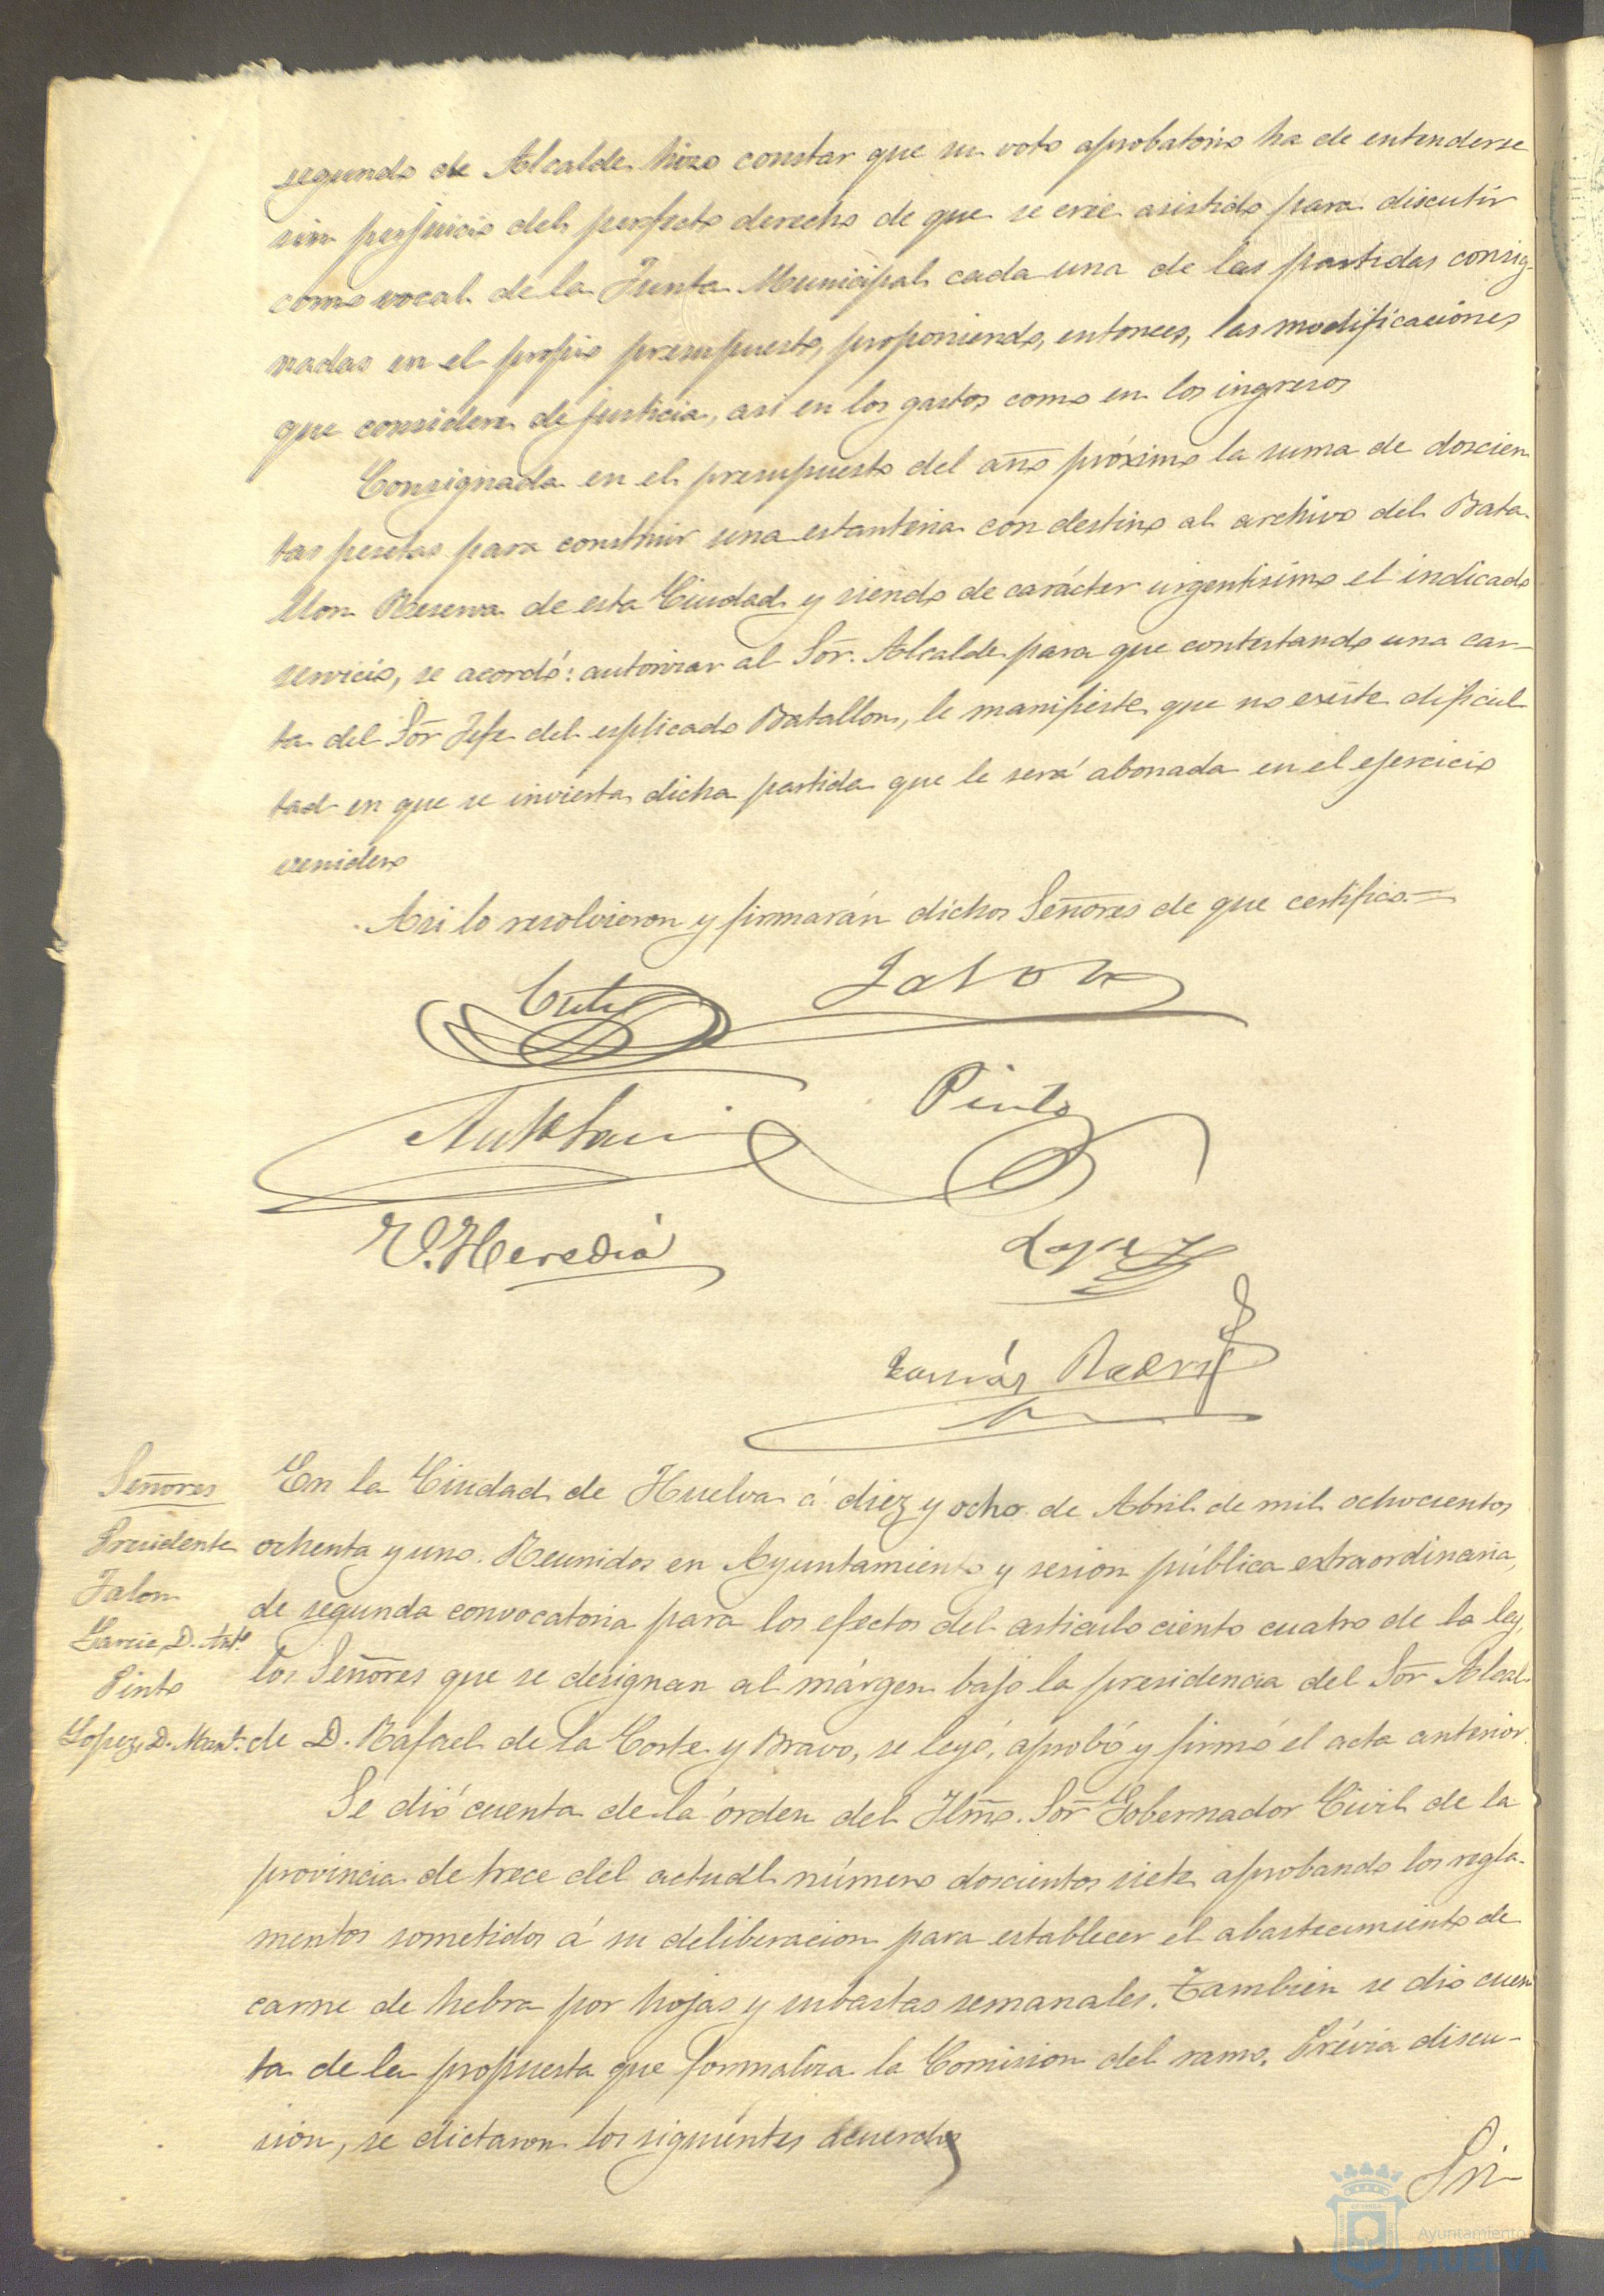 segundo de Alcalde hizo constar que su voto aprobatorio ha de entenderse
sin perjuicio del perfecto derecho de que se cree asistido para discutir
como vocal de la Junta Municipal cada una de las partidas consig-
nadas en el propio presupuesto, proponiendo, entonces, las modificaciones
que considere de justicia, asi en los gastos como en los ingresos
Consignada en el presupuesto del año próximo la suma de doscien
tas pesetas para construir una estanteria con destino al archivo del Bata-
llon Reserva de esta Ciudad y siendo de carácter urgentísimo el indicado
servicio, se acordó: autorizar al Sõr. Alcalde para que contestando una car-
ta del Sõr Jefe del esplicado Batallon, le manifieste que no existe dificul
tad en que se invierta dicha partida que le será abonada en el ejercicio
venidero
Asi lo resolvieron y firmarán dichos Señores de que certifico.=
Jalon
Pinto
V. Heredia
Lopez
Tomás
Señores
Presidente
Jalon
Garcia, D. Antº
Pinto
Lopez, D. Manl.
En la Ciudad de Huelva á diez y ocho de Abril de mil ochocientos
ochenta y uno. Reunidos en Ayuntamiento y sesion pública extraordinaria,
de segunda convocatoria para los efectos del articulo ciento cuatro de la ley,
los Señores que se designan al márgen bajo la presidencia del Sõr Alcal-
de D. Rafael de la Corte y Bravo, se leyó, aprobó y firmó el acta anterior.
Se dió cuenta de la órden del Ilmõ. Sõr Gobernador Civil de la
provincia de trece del actual número doscientos siete aprobando los regla-
mentos sometidos á su deliberacion para establecer el abastecimiento de
carne de hebra por hojas y subastas semanales. Tambien se dió cuen
ta de la propuesta que formaliza la Comision del ramo. Prévia discu-
sion, se dictaron los siguientes acuerdos
Pri-
Ayuntamiento
HUELVA